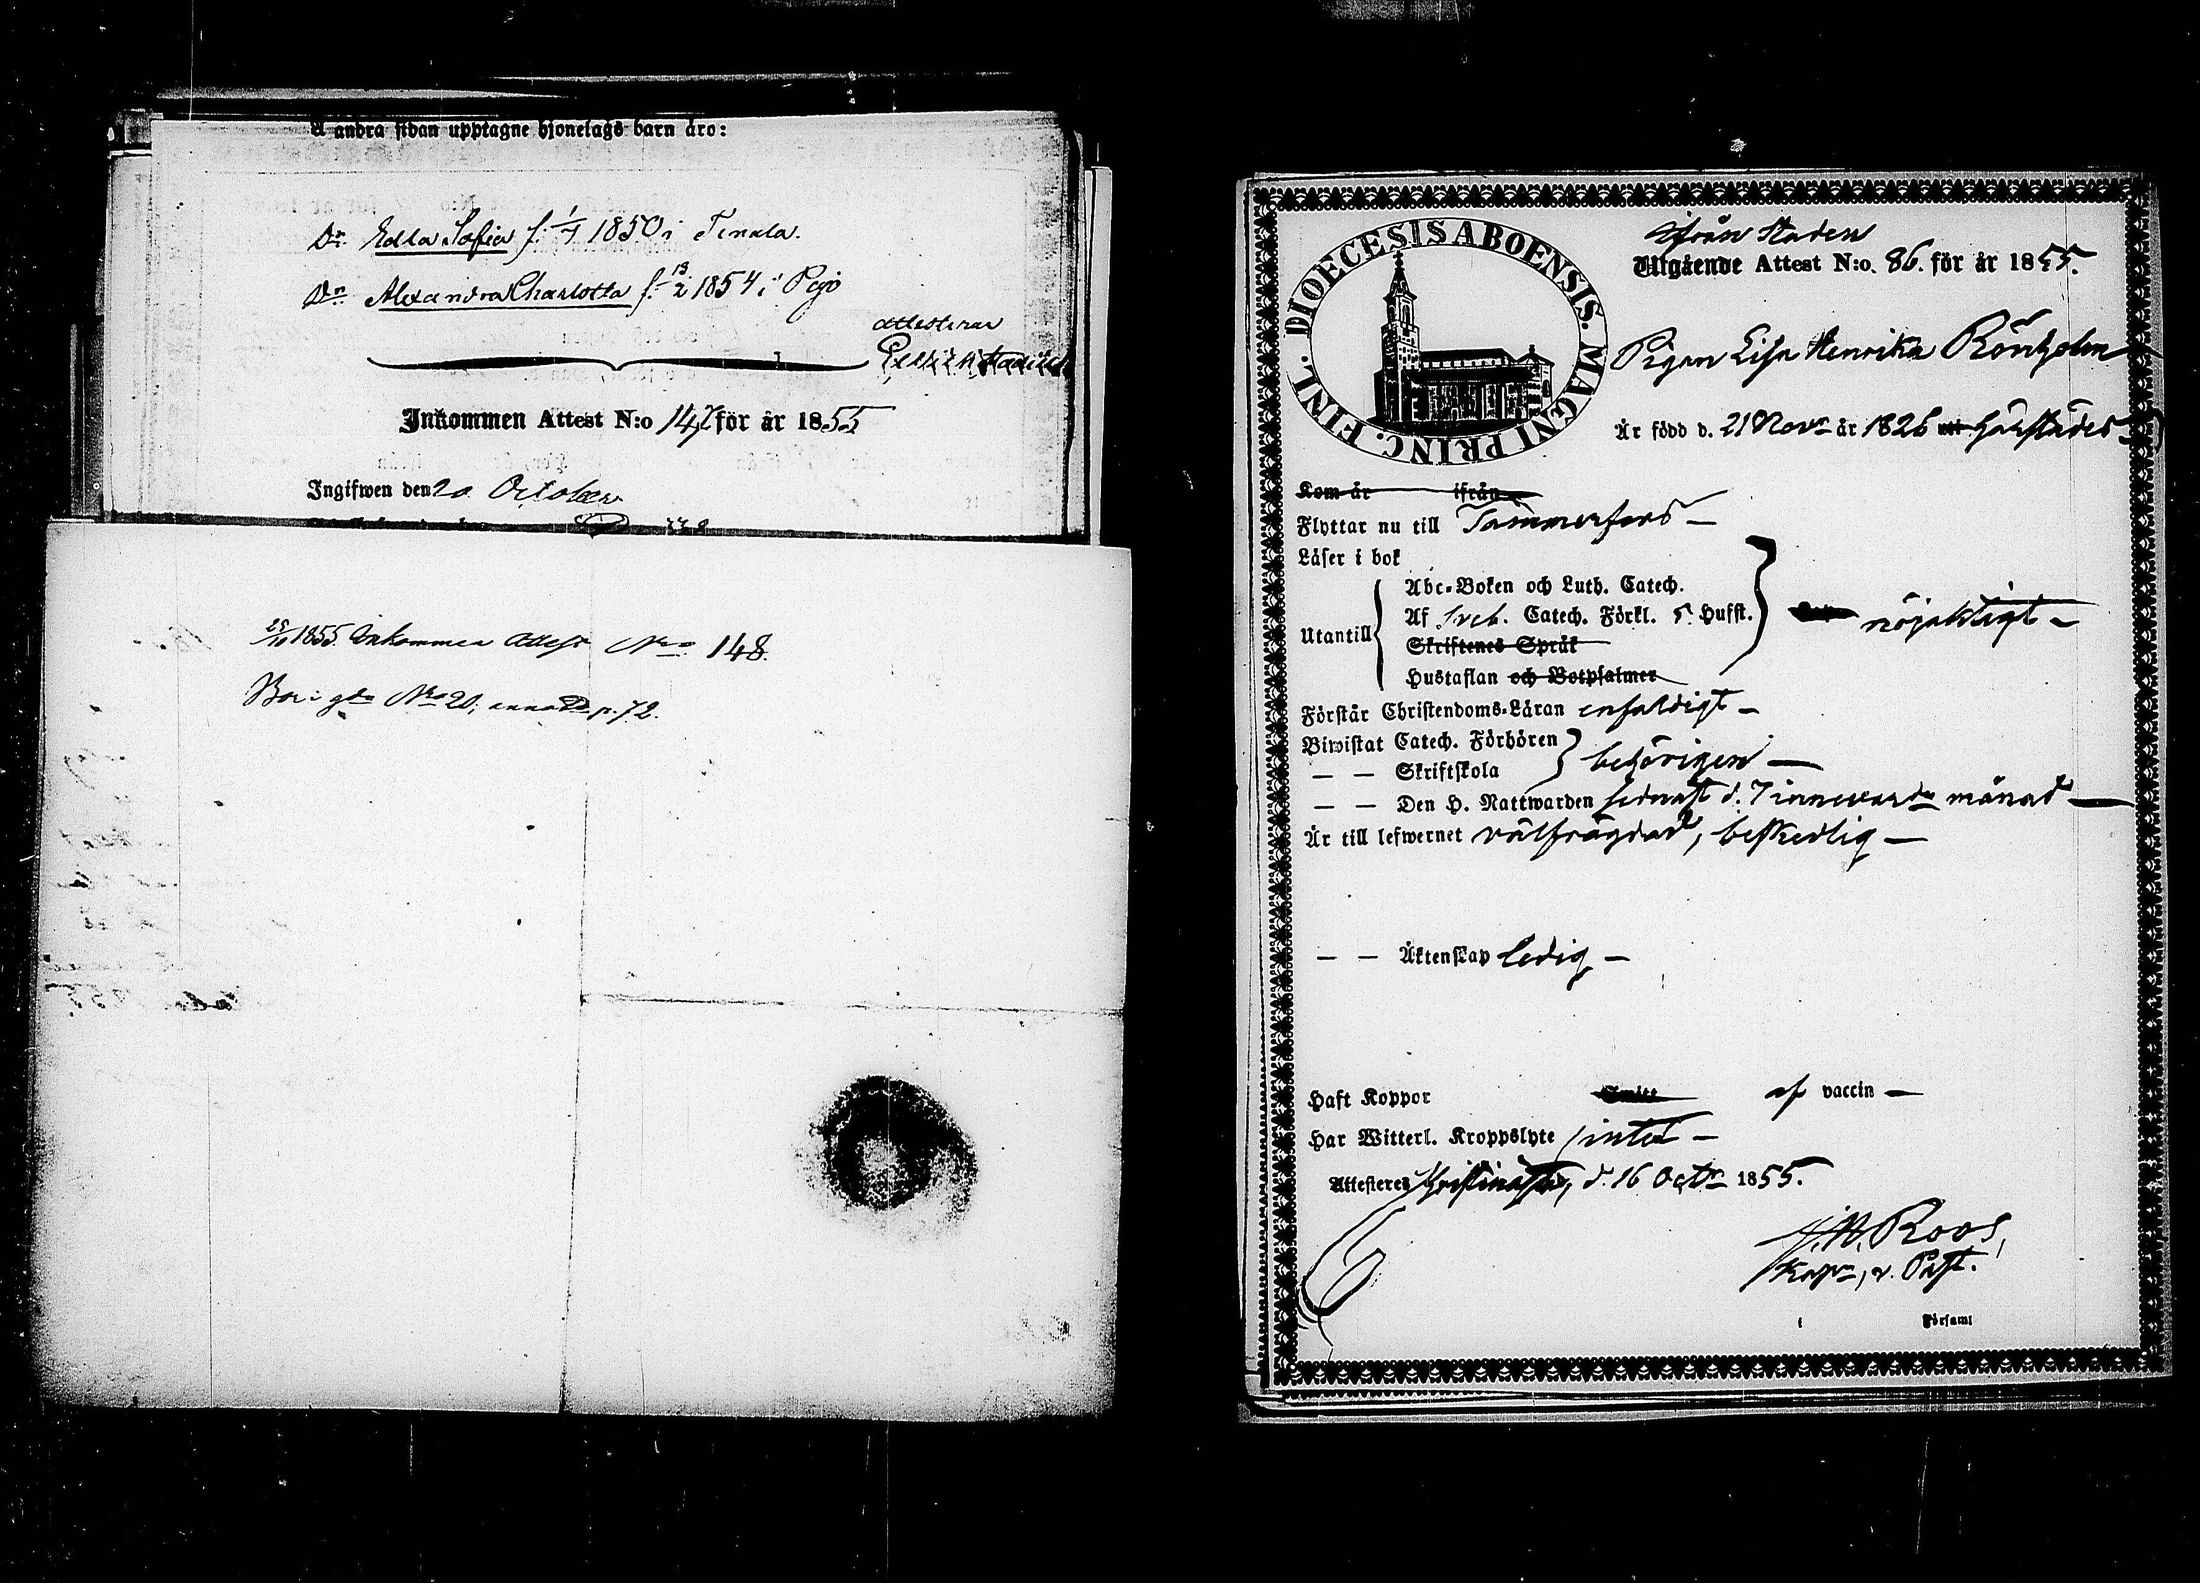 Å andra sidan upptagne hjonelags barn äro:
Dr. Edla Sofia f. 1/7 1850 i Tenala.
Dr. Alexandra Charlotta f. 13/2 1854 i Pojo
attesterar
Inkommen Attest N:o 147 för år 1855
Ingifwen den 20 October
25/10 1855 Inkommen Attest Nro 148.
Bor i gdn Nro 20, p. 72.
DIOECESIS ABOENSIS. MAGNI PRINC. FINL.
ifrån Staden
Utgående Attest N:o. 86. för år 1855.
Pigan Lisa Henrika Rönholm
Är född d. 21 Novr år 1826 härstädes
Kom år ifrån
Flyttar nu till Tammerfors
Läser i bok
Utantill
Abc-Boken och Luth. Catech.
Af Sveb. Catech. Förkl. 5 Hufst.
Skriftenes Språk
Hustaflan och Botpsalmer
nöjaktigt
Förstår Christendoms-Läran enfaldigt
Biwistat Catech. Förhören
— — Skriftskola
behörigen
— — Den H. Nattwarden sednast d. 7 innevarde månad
Är till lefwernet välfrägdad, beskedlig
— — Äktenskap ledig
Haft Koppor Smitt af vaccin
Har Witterl. Kroppslyte intet
Attesteres Christinestad, d. 16 Octr 1855.
J. M. Roos,
Kapn, v. Past.
i Församl